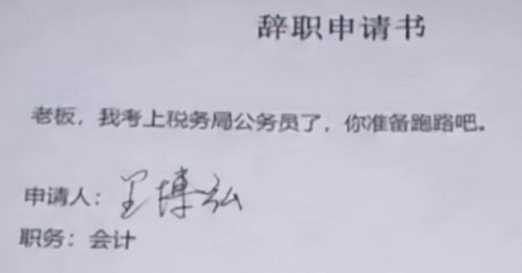 辞职申请书
老板，我考上税务局公务员了，你准备跑路吧。
申请人：王博弘
职务：会计